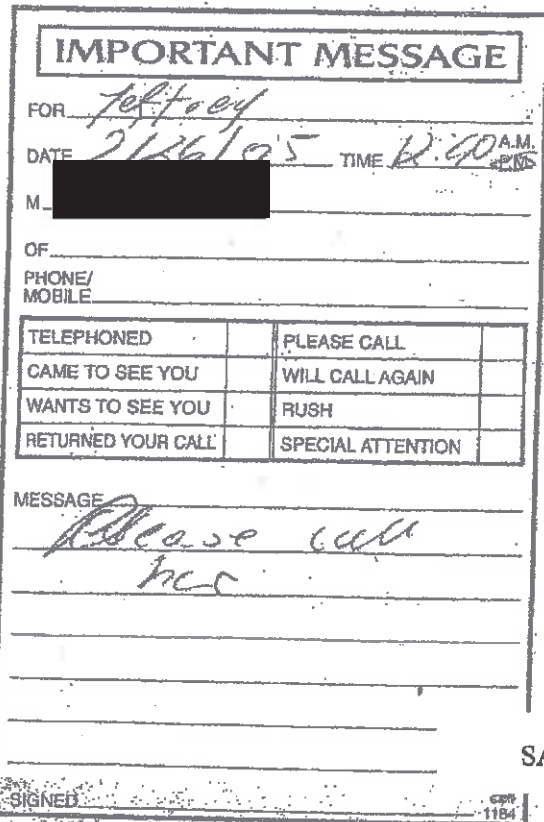 IMPORTANT MESSAGE
FOR Jeffrey
DATE 2/26/05 TIME A.M.
P.M.
M
OF
PHONE/
MOBILE
TELEPHONED PLEASE CALL
CAME TO SEE YOU WILL CALL AGAIN
WANTS TO SEE YOU RUSH
RETURNED YOUR CALL SPECIAL ATTENTION
MESSAGE
Please call
her
SA
SIGNED
1184